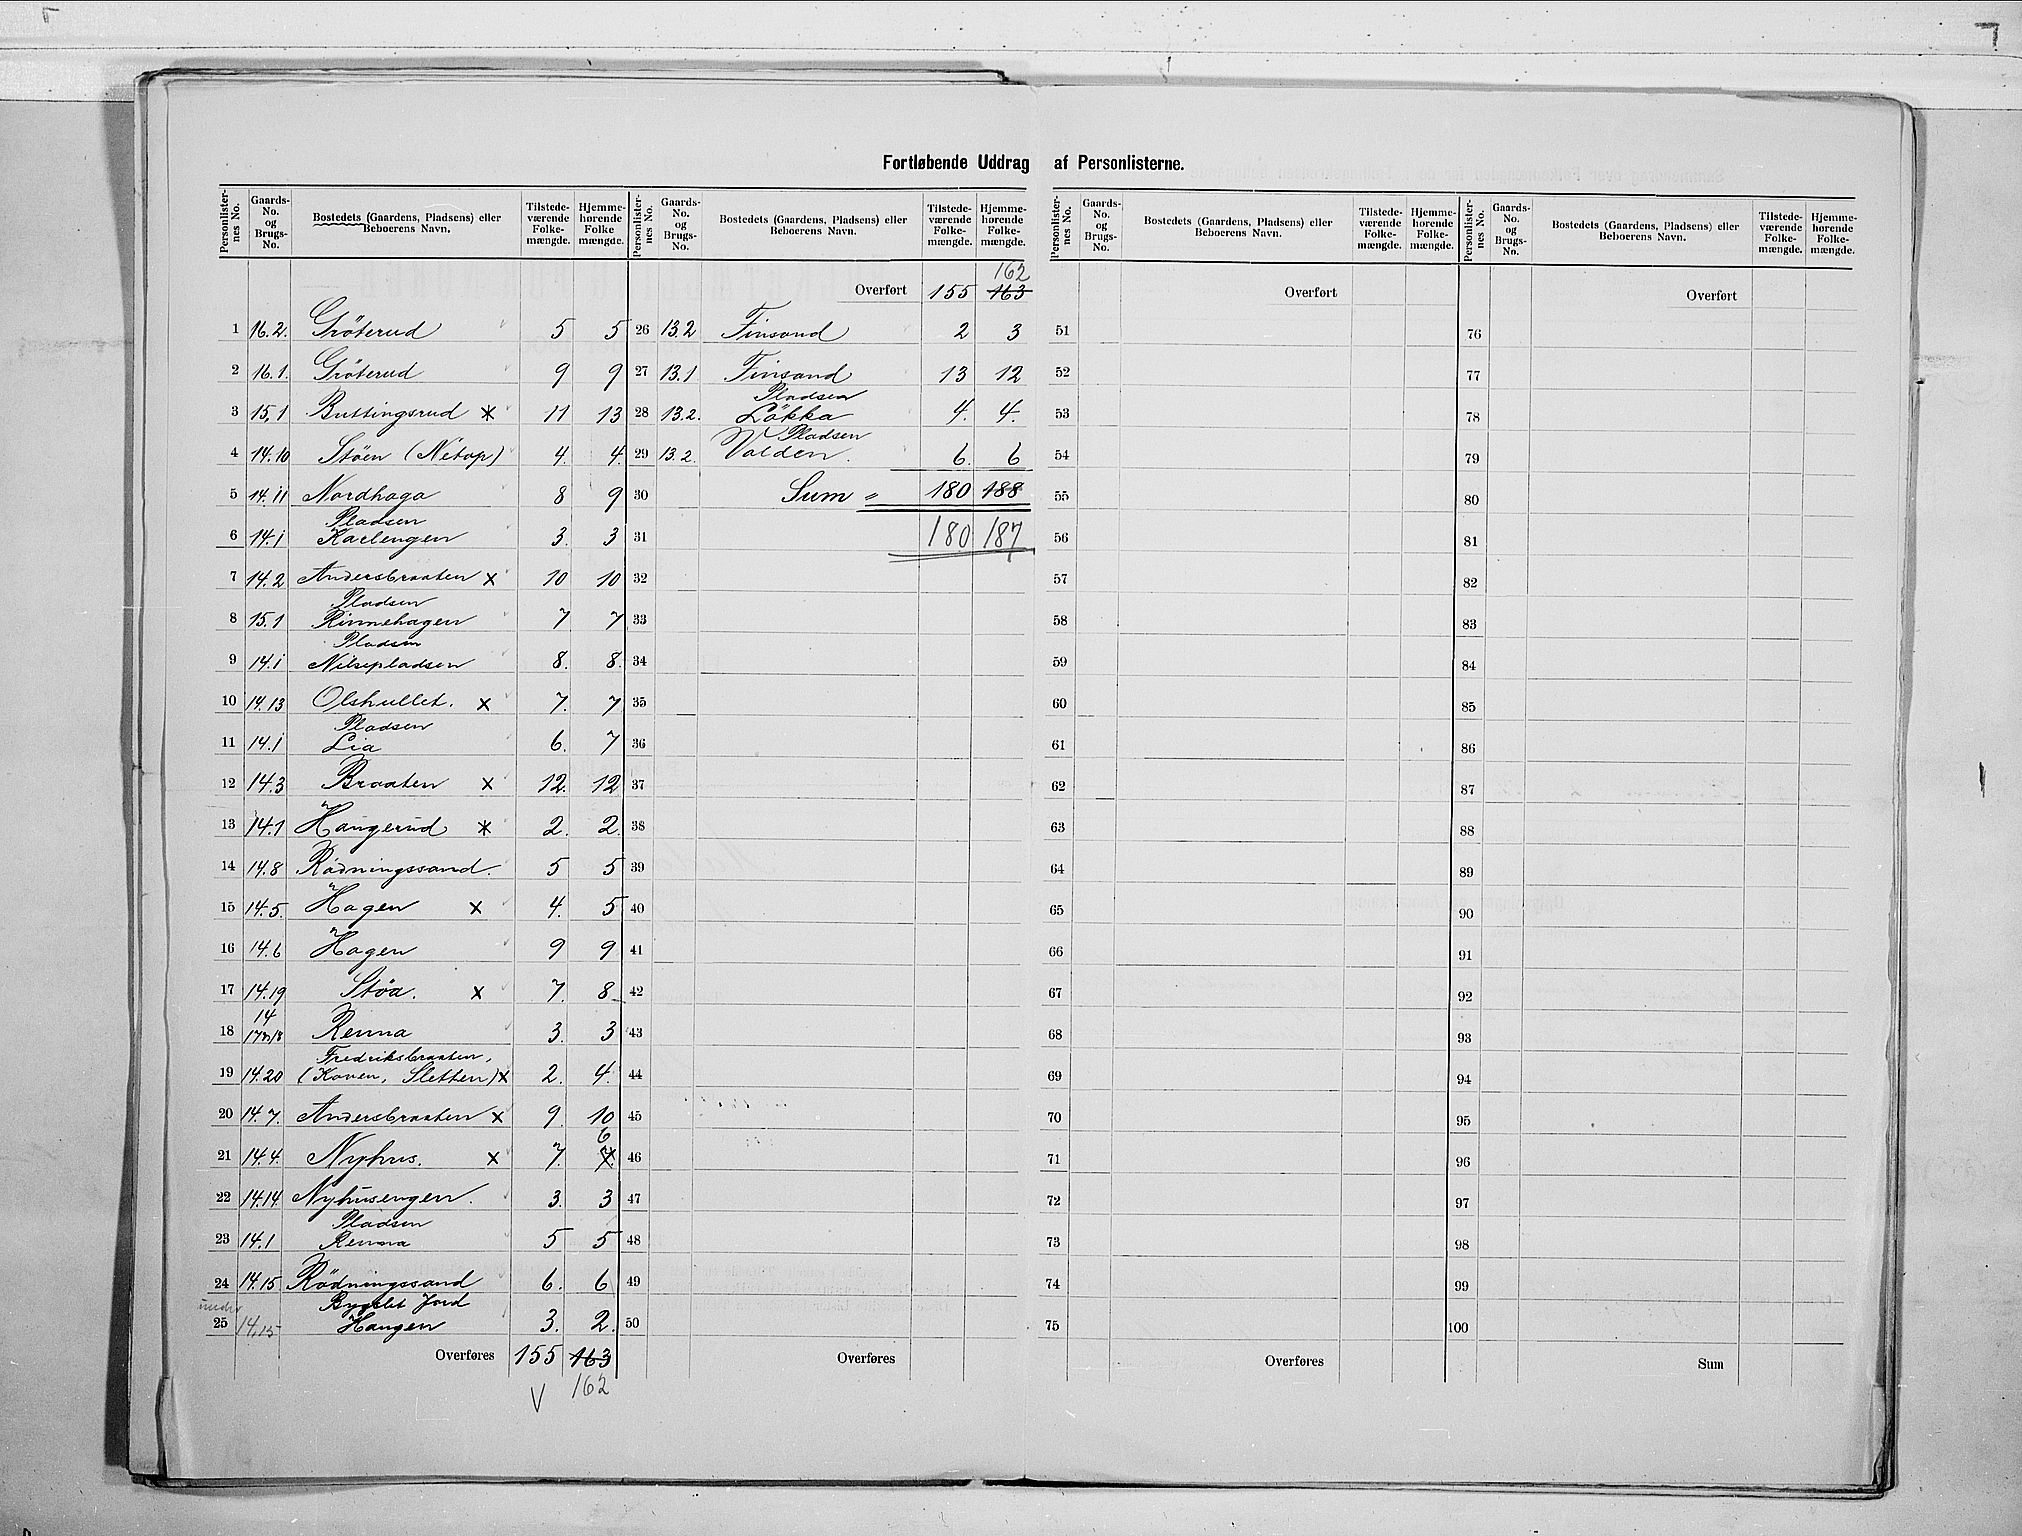 Fortløbende Uddrag af Personlisterne.
Personlisternes No. | Gaards-No. og Brugs-No. | Bostedets (Gaardens, Pladsens) eller Beboerens Navn. | Tilstedeværende Folkemængde. | Hjemmehørende Folkemængde.
1 16.2. Gröterud 5 5
2 16.1. Gröterud 9 9
3 15,1 Buttingsrud × 11 13
4 14.10 Stöen (Netop) 4. 4.
5 14.11 Nordhaga 8 9
Pladsen
6 14.1 Karlengen 3. 3
7 14.2 Andersbraaten × 10 10
Pladsen
8 15.1 Rinnehagen 7 7
Pladsen
9 14.1 Nilsepladsen 8. 8.
10 14.13 Olshullet. × 7. 7
Pladsen
11 14.1 Lia 6. 7
12 14.3 Braaten × 12. 12
13 14.1 Haugerud × 2. 2.
14 14.8 Rödningssand. 5 5
15 14.5. Hagen × 4. 5
16 14.6 Hagen 9 9
17 14.19 Stöa. × 7. 8
14
18 17 18 Renna 3. 3
Fredriksbraaten,
19 14.20 (Koven, Sletten) × 2. 4.
20 14.7. Andersbraaten × 9. 10
6
21 14.4. Nyhus. × 7. 7
22 14.14 Nyhusengen. 3. 3
Pladsen
23 14.1 Renna 5 5
24 14.15 Rödningssand 6. 6
under Bygslet Jord
25 14.15 Haugen 3. 2.
Overføres 155 163
V 162
162
Overført 155 163
26 13.2 Finsand 2 3
27 13.1 Finsand 13 12
Pladsen
28 13.2. Lökka 4. 4.
Pladsen
29 13.2. Valden. 6. 6
30 Sum " 180 188
31 180 187
32
33
34
35
36
37
38
39
40
41
42
43
44
45
46
47
48
49
50
Overføres
Personlisternes No. | Gaards-No. og Brugs-No. | Bostedets (Gaardens, Pladsens) eller Beboerens Navn. | Tilstedeværende Folkemængde. | Hjemmehørende Folkemængde.
Overført
51
52
53
54
55
56
57
58
59
60
61
62
63
64
65
66
67
68
69
70
71
72
73
74
75
Overføres
Overført
76
77
78
79
80
81
82
83
84
85
86
87
88
89
90
91
92
93
94
95
96
97
98
99
100
Sum